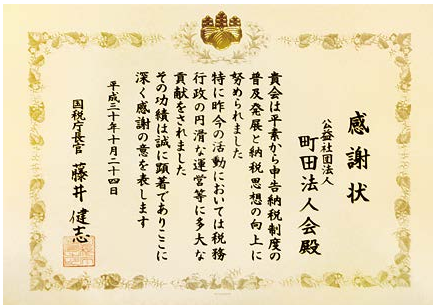 感謝状
公益社団法人
町田法人会殿
貴会は平素から申告納税制度の
普及発展と納税思想の向上に
努められました
特に昨今の活動においては税務
行政の円滑な運営等に多大な
貢献をされました
その功績は誠に顕著でありここに
深く感謝の意を表します
平成三十年十月二十四日
国税庁長官 藤井健志